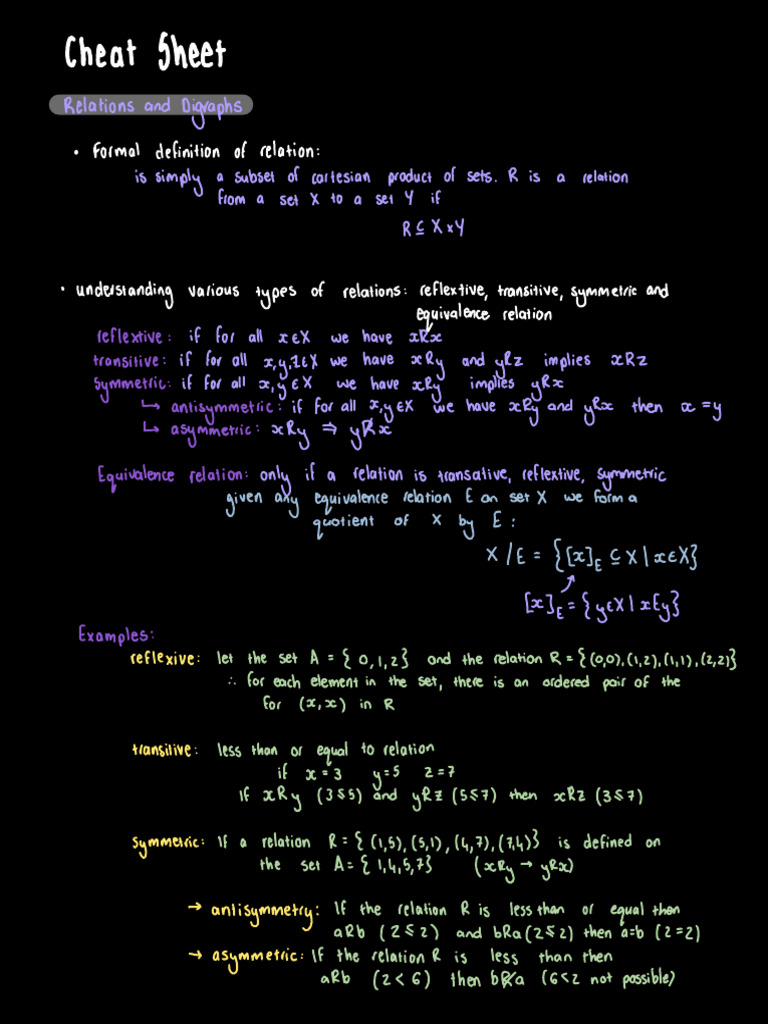 Cheat Sheet
Relations and Digraphs
• Formal definition of relation:
is simply a subset of cartesian product of sets. R is a relation
from a set X to a set Y if
R ⊆ X × Y
• understanding various types of relations: reflextive, transitive, symmetric and
equivalence relation
reflextive: if for all x∈X we have xRx
transitive: if for all x,y,z∈X we have xRy and yRz implies xRz
symmetric: if for all x,y∈X we have xRy implies yRx
↳ antisymmetric: if for all x,y∈X we have xRy and yRx then x=y
↳ asymmetric: xRy ⇒ yR̸x
Equivalence relation: only if a relation is transative, reflextive, symmetric
given any equivalence relation E on set X we form a
quotient of X by E:
X/E = {[x]_E ⊆ X | x∈X}
[x]_E = {y∈X | xEy}
Examples:
reflexive: let the set A = {0,1,2} and the relation R = {(0,0),(1,2),(1,1),(2,2)}
∴ for each element in the set, there is an ordered pair of the
for (x,x) in R
transitive: less than or equal to relation
if x=3 y=5 z=7
If xRy (3≤5) and yRz (5≤7) then xRz (3≤7)
symmetric: If a relation R = {(1,5),(5,1),(4,7),(7,4)} is defined on
the set A = {1,4,5,7} (xRy → yRx)
→ antisymmetry: If the relation R is less than or equal then
aRb (2≤2) and bRa (2≤2) then a=b (2=2)
→ asymmetric: If the relation R is less than then
aRb (2<6) then bR̸a (6<2 not possible)